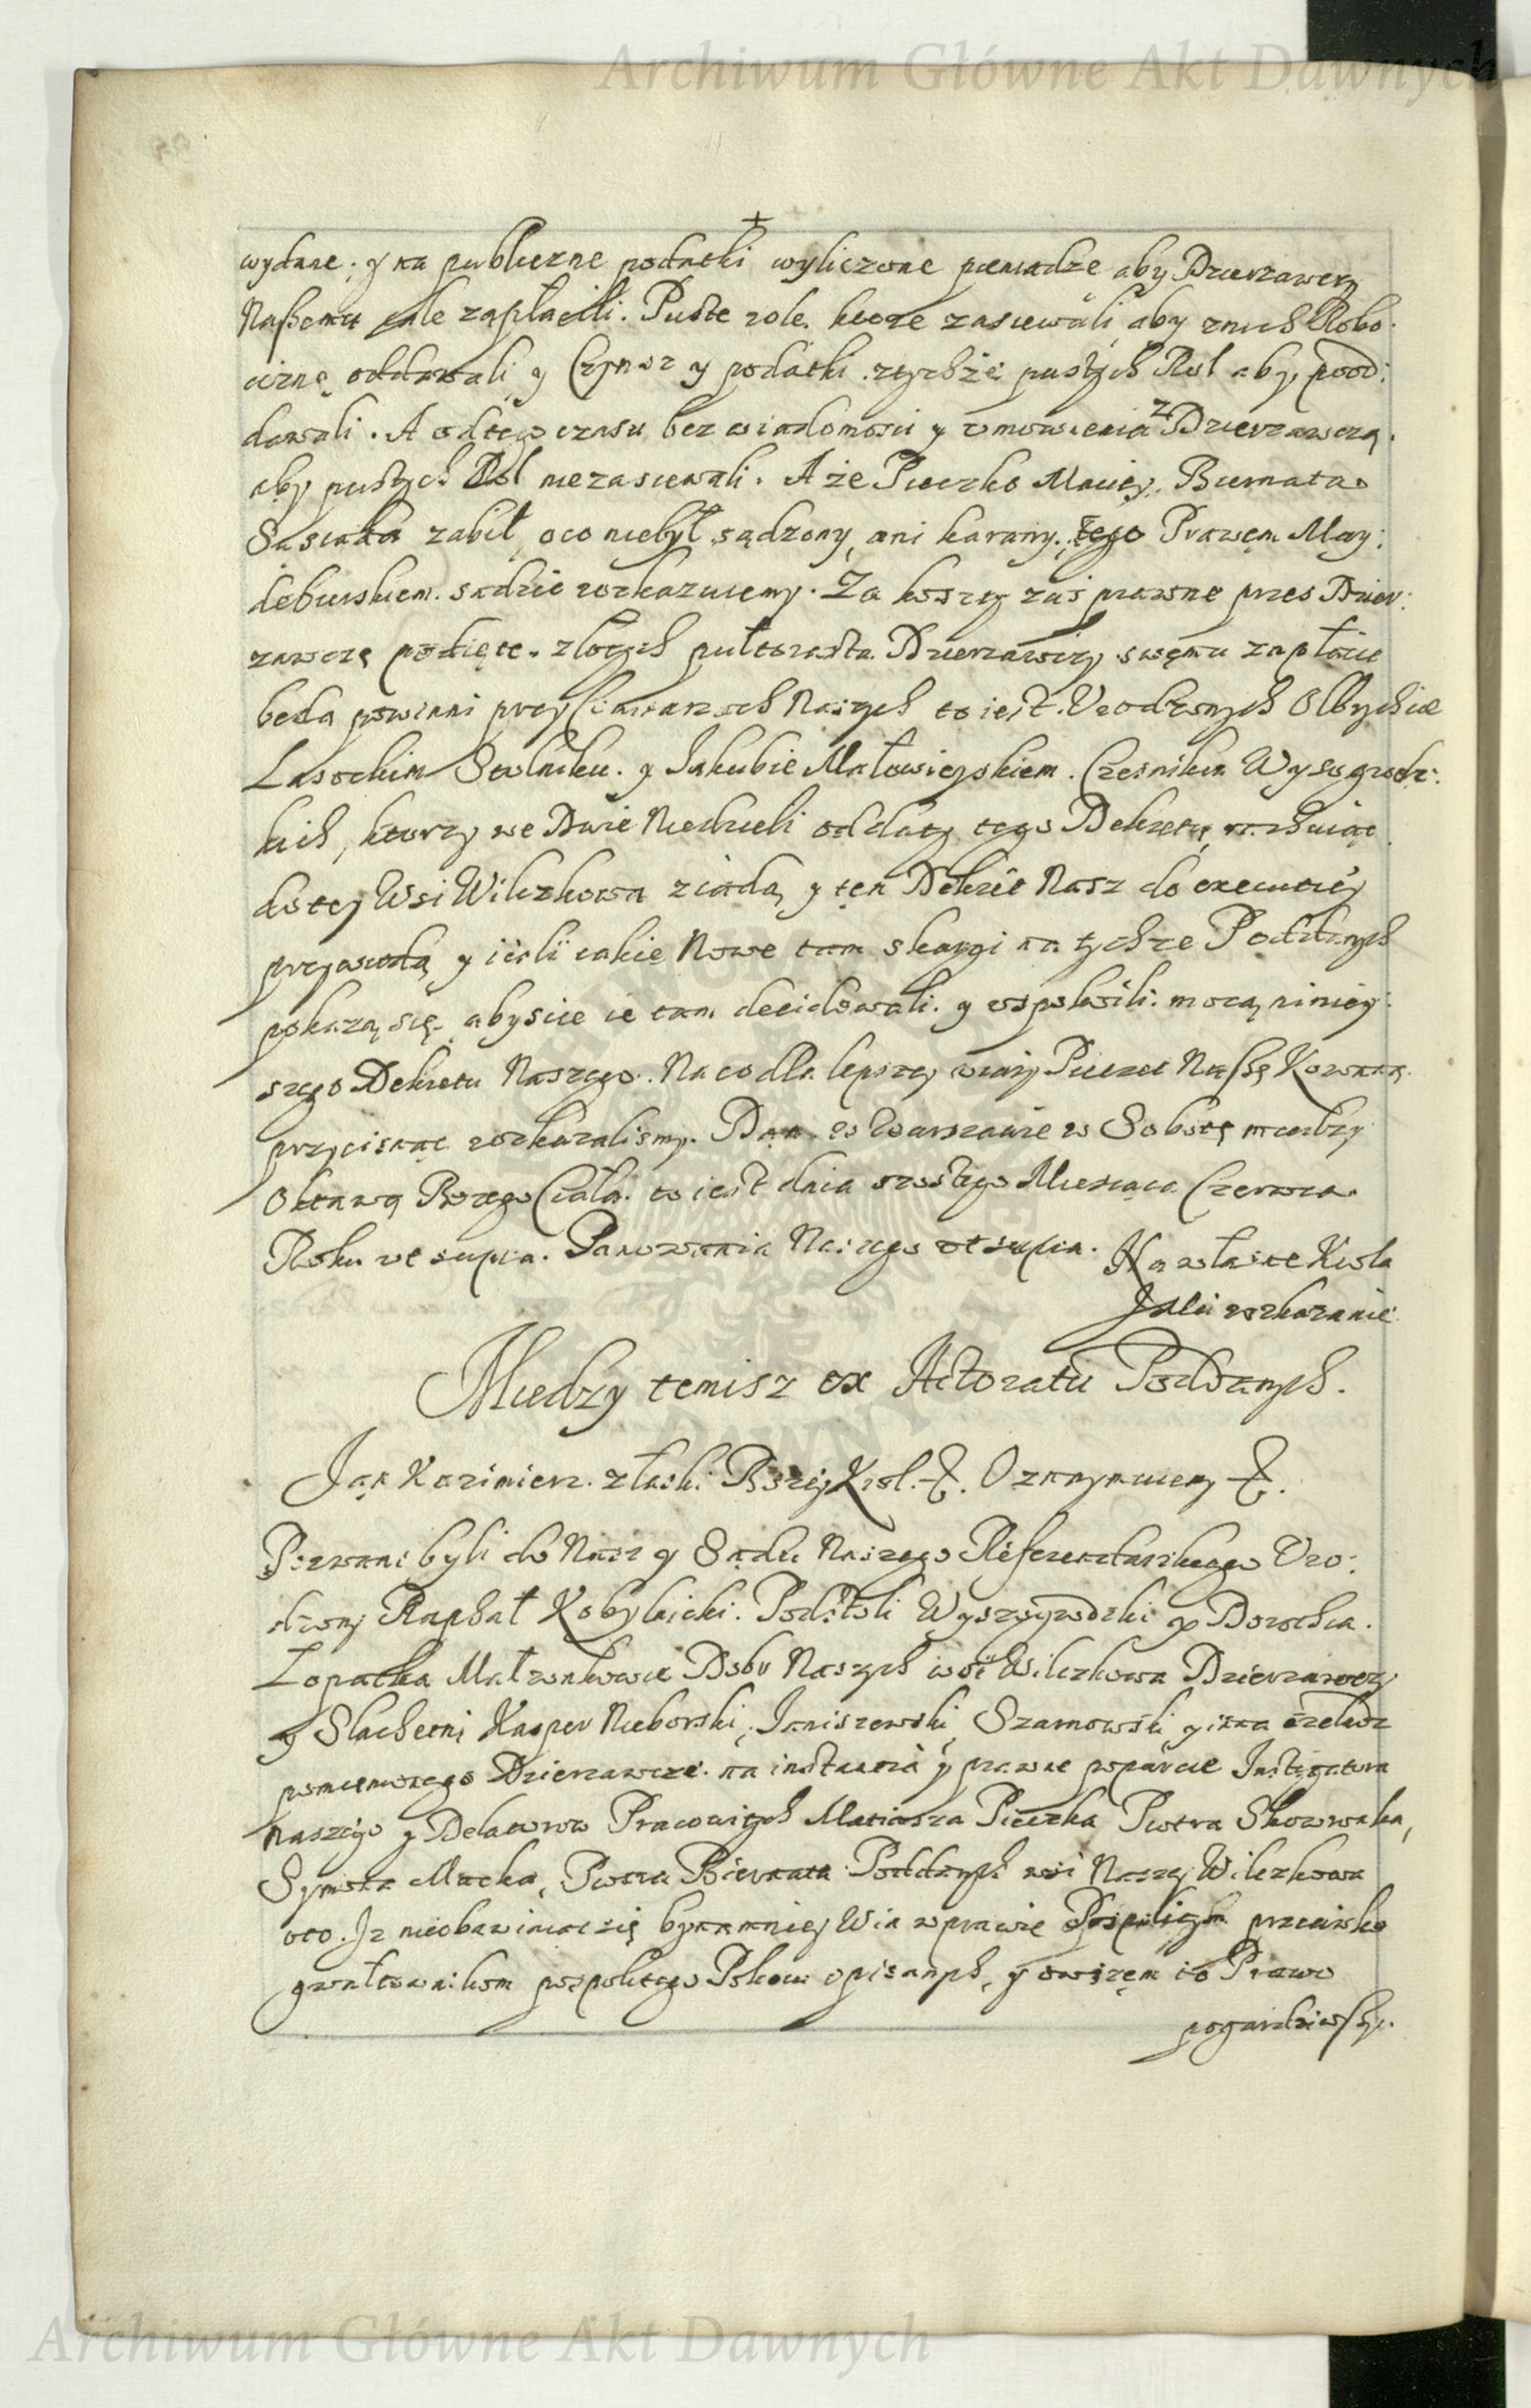 Archiwum Główne Akt Dawnych
wydane. y na publiczne podatki wyliczone pieniądze aby Dzierzawcy
Naßemu cale zapłacili. Puste role. ktore zasiewali aby znich Robo:
ciznę oddawali y Czynsz y podatki. ztychże pustych Rol aby pood:
dawali. A odtego czasu bez wiadomosci y vmowienia z Dzierzawczą.
aby pustych Rol niezasiewali. A że Pieczko Maciey. Biernata
Sąsiada zabił, oco niebył sądzony, ani karany. tego Prawem May:
deburskiem. sądzic rozkazuiemy. Za koszty zaś prawne przes Dzier:
zawczę podięte. złotych pułtorasta Dzierzawczy swęmu zapłacic
będą powinni przy Commissarzach Naszych to iest. Vrodzonych Olbrychcie
Lasockim Stolniku. y Jakubie Małowieyskiem. Czesniku Wyszogrodz:
kich, ktorzy we Dwie Niedzieli oddaty tego Dekretu, rachuiąc
do tey Wsi Wilczkowa ziadą y ten Dekret Nasz do executiey
przywiodą y iesli iakie Nowe tam skargi na tychze Poddanych
pokazą się. abyscie ie tam decidowali. y vspokoili. mocą niniey:
szego Dekretu Naszego. Na co dla lepszey wiary Pieczęć Naßę Koronną.
przycisnąc rozkazalismy. Dan. w Warszawie w Sobotę miedzy
Oktawą Bozego Ciała. to iest dnia szostego Miesiąca Czerwca.
Roku vt supra. Panowania Naszego vt supra. Na własne Krola
Jmści rozkazanie
Miedzy temisz ex Actoratu Poddanych.
Jan Kazimierz. z łaski Bozey Krol. &. Oznaymuiemy &.
Pozwani byli do Nasz y Sądu Naszego Referendarskiego Vro:
dzony Raphał Kobylnicki. Podstoli Wyszogrodzki y Dorothea.
Łopacka Małzonkowie Dobr Naszych wsi Wilczkowa Dzierzawcy
y Slachetni Kasper Nieborski, Janiszewski, Szarnowski y inna czeladz
pomienionego Dzierzawcze. na instantią y prawne poparcie Instygatora
naszego y Delatorow Pracowitych Macieisza Pieczka Piotra Skowronka,
Symona Macka, Piotra Biernata Poddanych wsi Naszey Wilczkowa
oto. Iz nieobawiaiac się bynamniey Win w prawie Pospolitym przeciwko
gwałtownikom pospolitego Pokoiu opisanych, y owszem to Prawo
pogardziwszy.
Archiwum Główne Akt Dawnych